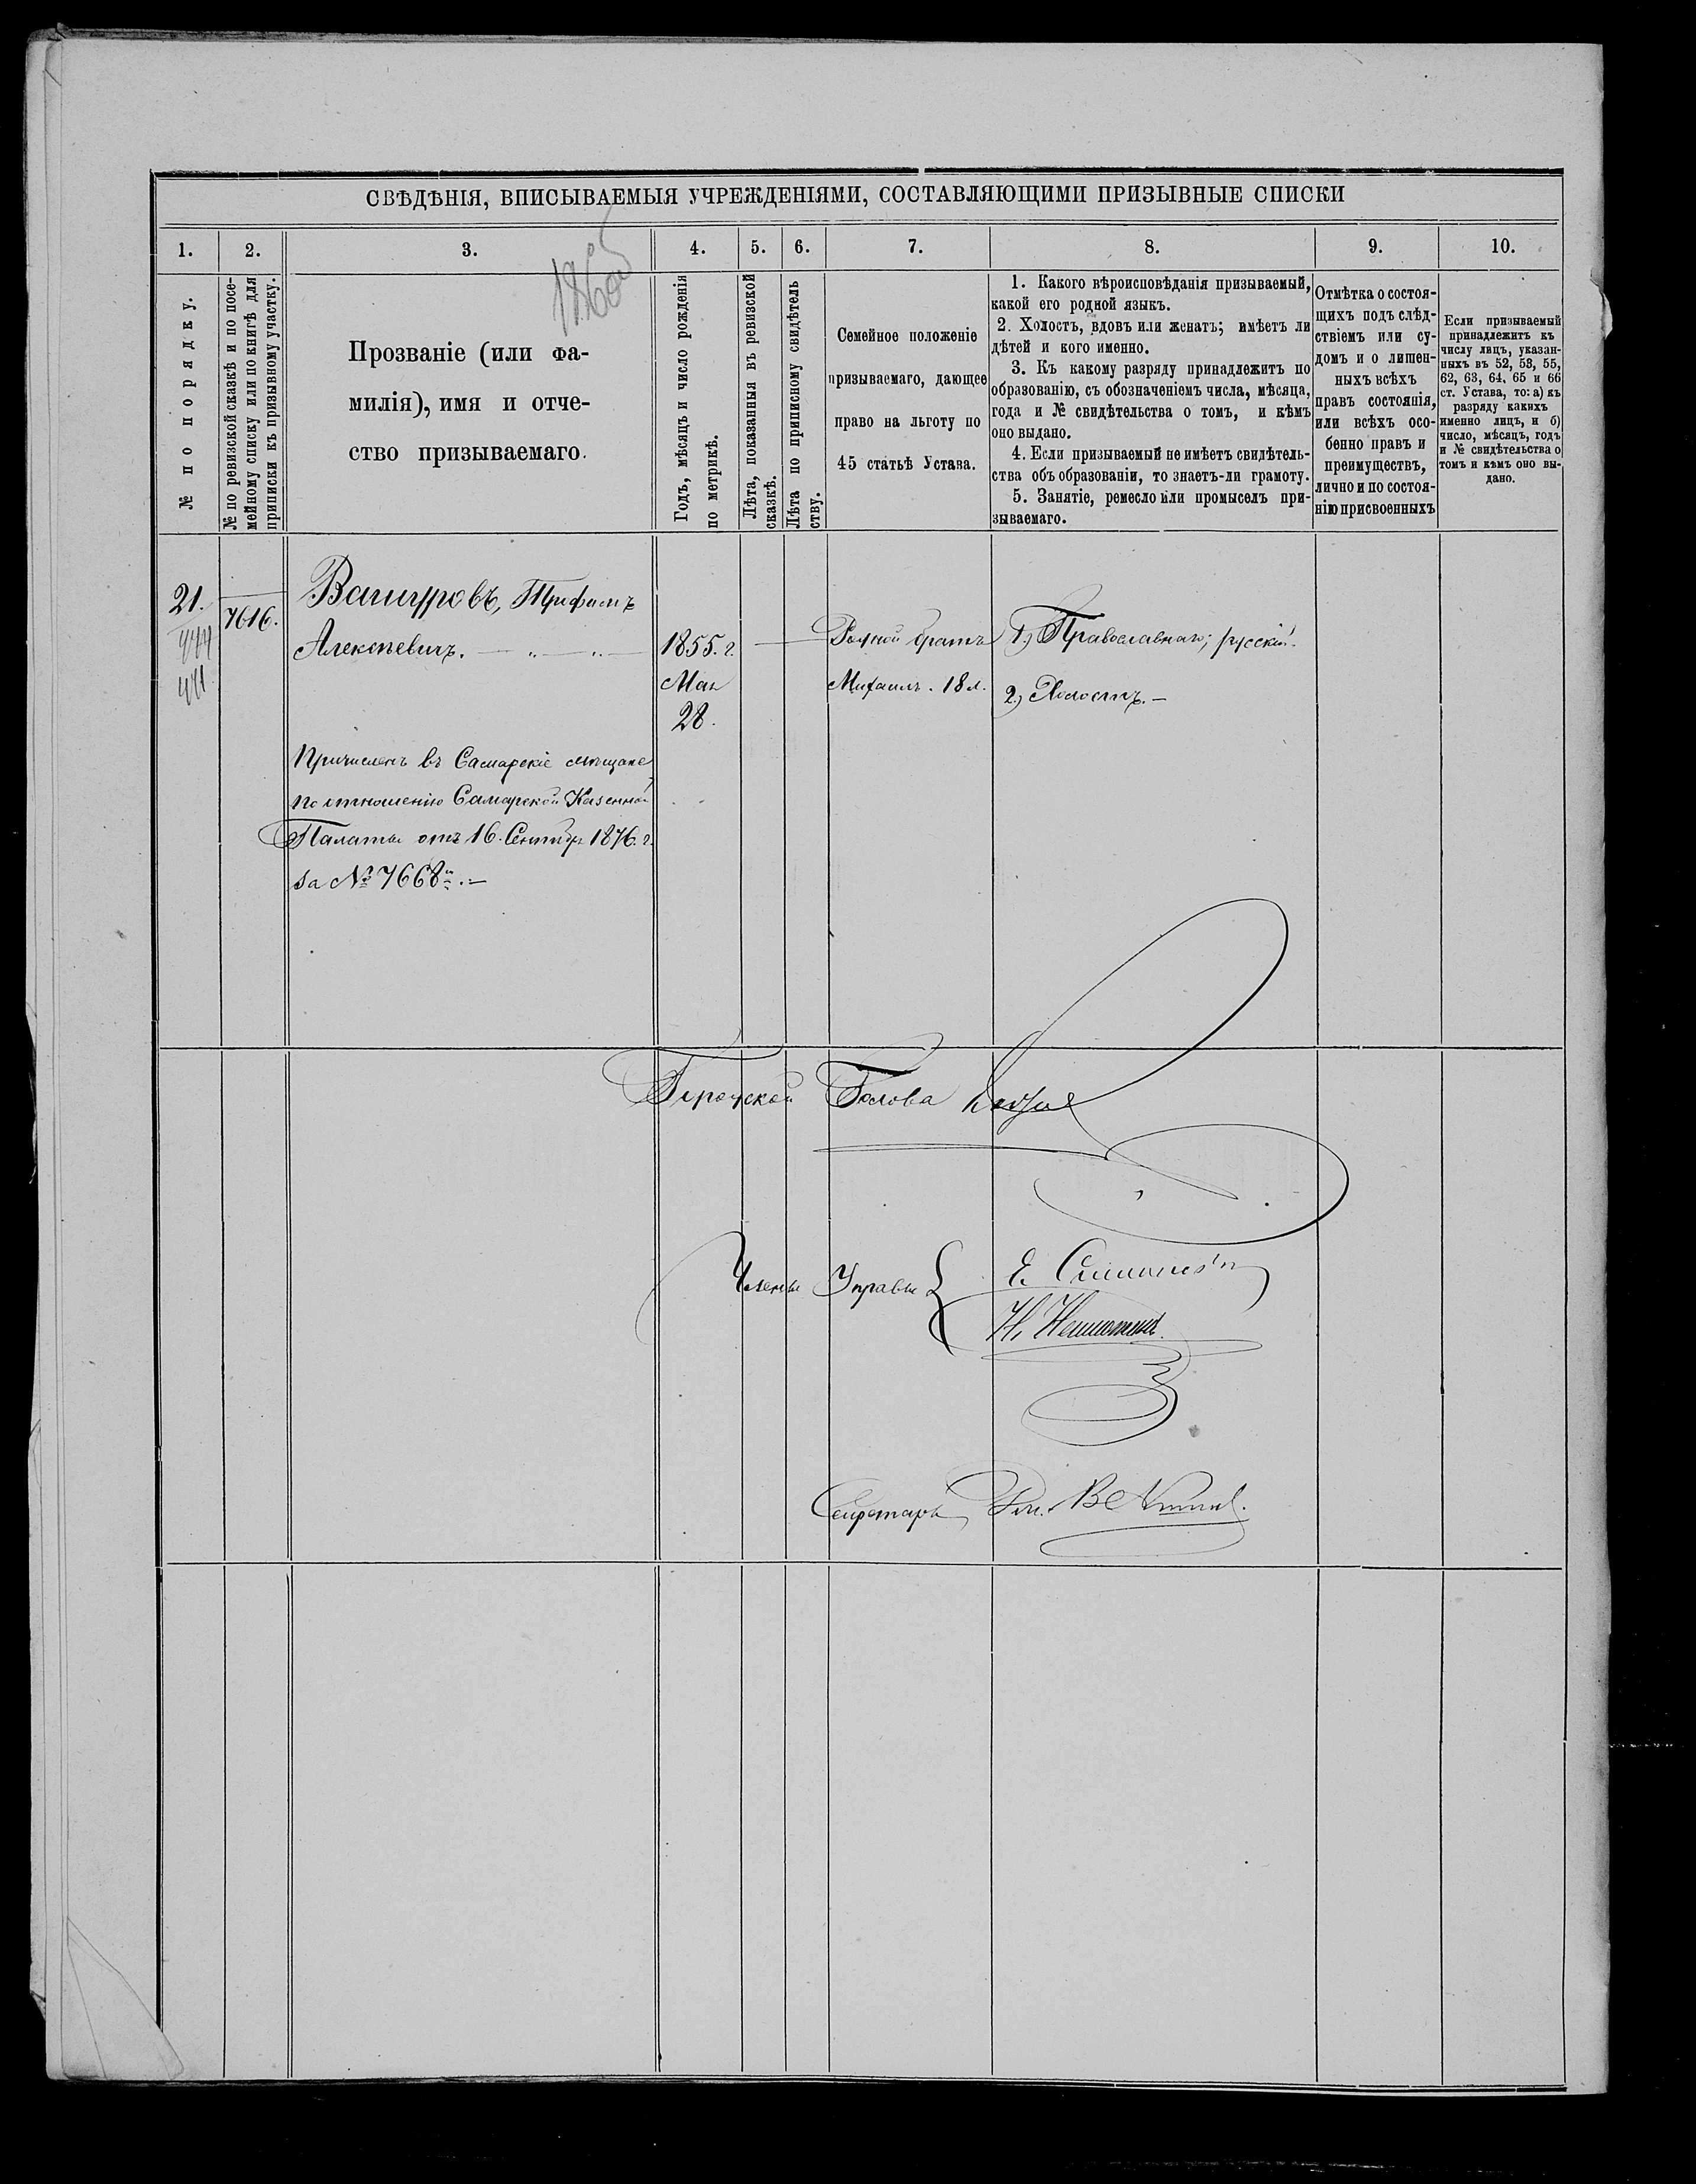 СВѢДѢНІЯ, ВПИСЫВАЕМЫЯ УЧРЕЖДЕНІЯМИ, СОСТАВЛЯЮЩИМИ ПРИЗЫВНЫЕ СПИСКИ
1.
2.
3.
4.
5.
6.
7.
8.
9.
10.
№ по порядку.
№ по ревизской сказкѣ и по посе-
мейному списку или по книгѣ для
приписки къ призывному участку.
Прозваніе (или фа-
милія), имя и отче-
ство призываемаго.
Годъ, мѣсяцъ и число рожденія
по метрикѣ.
Лѣта, показанныя въ ревизской
сказкѣ.
Лѣта по приписному свидѣтель
ству.
Семейное положеніе
призываемаго, дающее
право на льготу по
45 статьѣ Устава.
1. Какого вѣроисповѣданія призываемый,
какой его родной языкъ.
2. Холостъ, вдовъ или женатъ; имѣетъ ли
дѣтей и кого именно.
3. Къ какому разряду принадлежитъ по
образованію, съ обозначеніемъ числа, мѣсяца,
года и № свидѣтельства о томъ, и кѣмъ
оно выдано.
4. Если призываемый не имѣетъ свидѣтель-
ства объ образованіи, то знаетъ-ли грамоту.
5. Занятіе, ремесло или промыселъ при-
зываемаго.
Отмѣтка о состоя-
щихъ подъ слѣд-
ствіемъ или су-
домъ и о лишен-
ныхъ всѣхъ
правъ состоянія,
или всѣхъ осо-
бенно правъ и
преимуществъ,
лично и по состоя-
нію присвоенныхъ
Если призываемый
принадлежитъ къ
числу лицъ, указан-
ныхъ въ 52, 53, 55,
62, 63, 64, 65 и 66
ст. Устава, то: а) къ
разряду какихъ
именно лицъ, и б)
число, мѣсяцъ, годъ
и № свидѣтельства о
томъ и кѣмъ оно вы-
дано.
21.
7616.
Вашуровъ, Трифонъ
Алексѣевичъ.
1855. г.
Мая
28.
Родной братъ
Михаилъ. 18 л.
1.) Православнаго; русскій.
2.) Холостъ. —
Причисленъ въ Самарскіе мѣщане
по отношенію Самарской Казенной
Палаты отъ 16. Сентябр 1876. г.
за № 7668
Городской Голова
Члены Управы
Секретарь